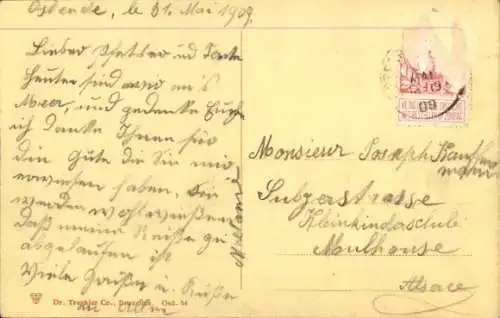 Ostende, le 31. Mai 1909.
Lieber und Tante
Heute sind an's
Meer, und gedenke
ich danke Ihnen für
die Güte die Sie mir
erwiesen haben. Sie
werden wohl wissen
daß meine Reise gut
abgelaufen ist
Viele Grüße u. Küße
an Alle
Melanie
MAI
09
Monsieur Joseph Kauffmann
Sulzerstrasse
Kleinkinderschule
Mulhouse
Alsace
Dr. Trenkler Co., Bruxelles. Ost. 54